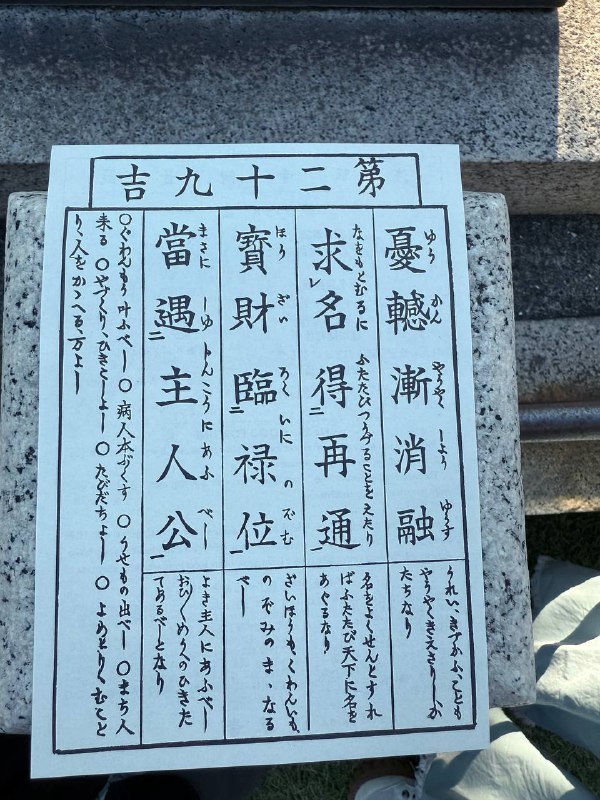 第二十九吉
憂轗漸消融
ゆうかん やうやく しよう ゆうす
うれい、きづかふことも
やうやくきえさりしか
たちなり
求名得再通
レ 二 一
なをもとむるに ふたたびつうずることをえたり
名をよくせんとすれ
ばふたたび天下に名を
あぐるなり
寶財臨禄位
二 一
ほうざい ろくいに のぞむ
ざいほうも、くわんいも、
のぞみのまゝなる
べし
當遇主人公
二 一
まさに しゆじんこうに あふべし
よき主人にあふべし
おひ〱めうへのひきた
てあるべしとなり
○ぐわんもう叶ふべし ○病人本ぶくす ○うせもの出べし ○まち人
来る ○やづくり、ひきこしよし ○たびだちよし ○よめとり、むこと
り、人をかゝへる、万よし